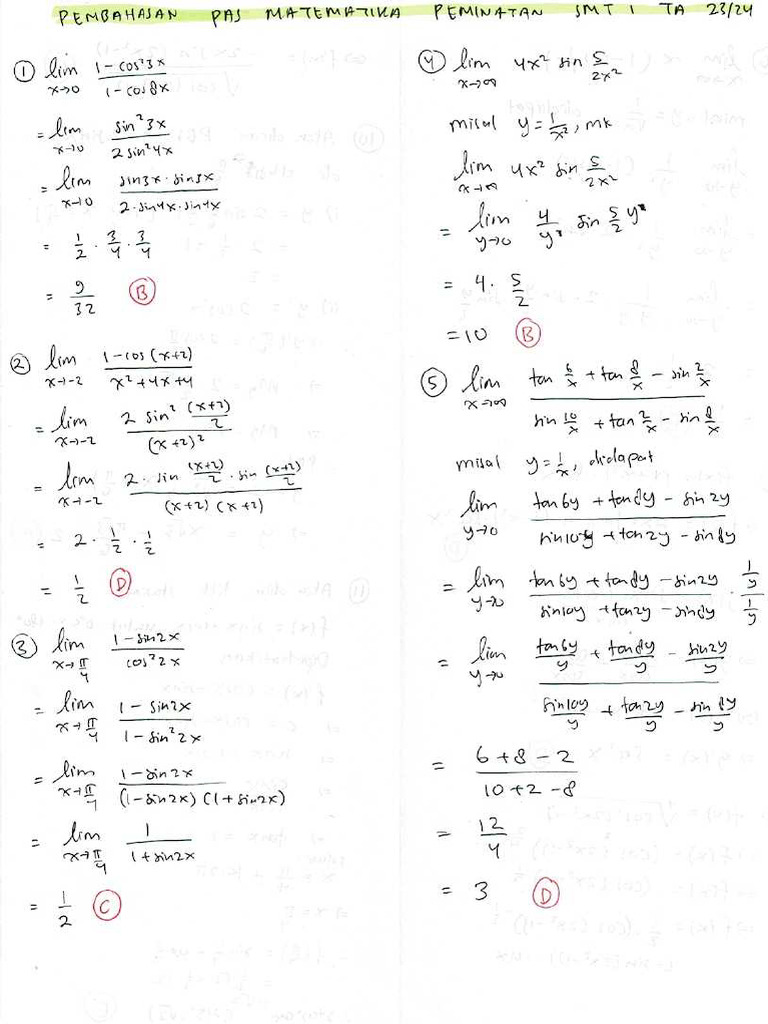 PEMBAHASAN PAS MATEMATIKA PEMINATAN SMT 1 TA 23/24
① lim x→0 (1-cos²3x)/(1-cos8x)
= lim x→0 sin²3x/(2sin²4x)
= lim x→0 (sin3x·sin3x)/(2·sin4x·sin4x)
= 1/2 · 3/4 · 3/4
= 9/32 Ⓑ
② lim x→-2 (1-cos(x+2))/(x²+4x+4)
= lim x→-2 (2 sin² (x+2)/2)/(x+2)²
= lim x→-2 (2·sin (x+2)/2 · sin (x+2)/2)/((x+2)(x+2))
= 2·1/2·1/2
= 1/2 Ⓓ
③ lim x→π/4 (1-sin2x)/(cos²2x)
= lim x→π/4 (1-sin2x)/(1-sin²2x)
= lim x→π/4 (1-sin2x)/((1-sin2x)(1+sin2x))
= lim x→π/4 1/(1+sin2x)
= 1/2 Ⓒ
④ lim x→∞ 4x² sin 5/(2x²)
misal y=1/x², mk
lim x→∞ 4x² sin 5/(2x²)
= lim y→0 4/y sin 5/2 y
= 4·5/2
=10 Ⓑ
⑤ lim x→∞ (tan 6/x + tan 8/x - sin 2/x)/(sin 10/x + tan 2/x - sin 8/x)
misal y=1/x, didapat
lim y→0 (tan6y + tan8y - sin2y)/(sin10y + tan2y - sin8y)
= lim y→0 (tan6y + tan8y - sin2y)/(sin10y + tan2y - sin8y) · (1/y)/(1/y)
= lim y→0 (tan6y/y + tan8y/y - sin2y/y)/(sin10y/y + tan2y/y - sin8y/y)
= (6+8-2)/(10+2-8)
= 12/4
= 3 Ⓓ